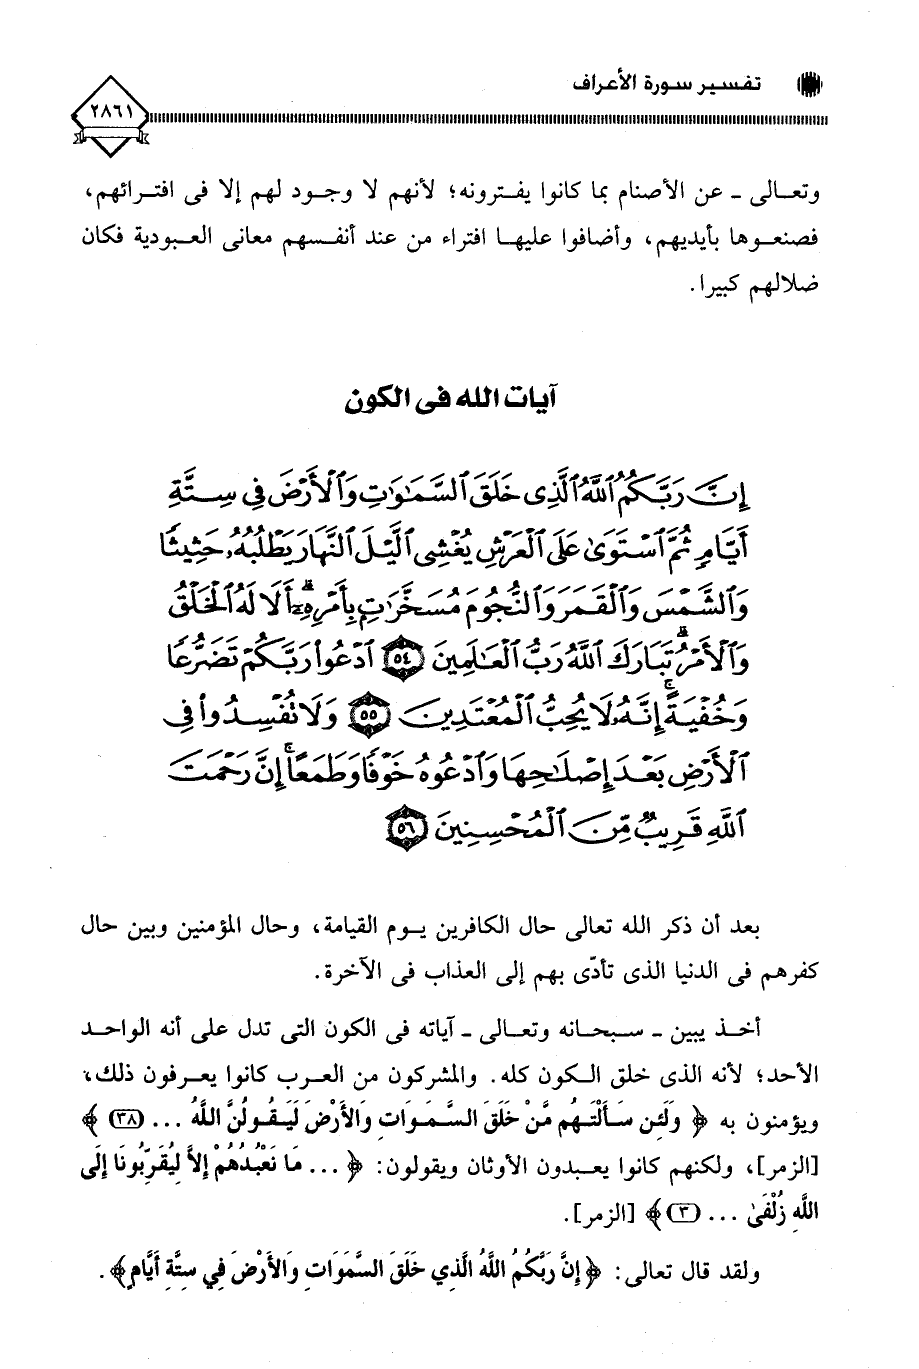 تفسير سورة الأعراف
٢٨٦١
وتعـالى ـ عن الأصنام بما كانوا يفـترونه؛ لأنهم لا وجـود لهم إلا فى افتـرائهم،
فصنعـوها بأيديهم، وأضافوا عليهـا افتراء من عند أنفـسهم معانى العـبودية فكان
ضلالهم كبيرا.
آيات الله فى الكون
إِنَّ رَبَّكُمُ ٱللَّهُ ٱلَّذِى خَلَقَ ٱلسَّمَٰوَٰتِ وَٱلْأَرْضَ فِى سِتَّةِ
أَيَّامٍ ثُمَّ ٱسْتَوَىٰ عَلَى ٱلْعَرْشِ يُغْشِى ٱلَّيْلَ ٱلنَّهَارَ يَطْلُبُهُۥ حَثِيثًا
وَٱلشَّمْسَ وَٱلْقَمَرَ وَٱلنُّجُومَ مُسَخَّرَٰتٍۭ بِأَمْرِهِۦٓ ۗ أَلَا لَهُ ٱلْخَلْقُ
وَٱلْأَمْرُ ۗ تَبَارَكَ ٱللَّهُ رَبُّ ٱلْعَٰلَمِينَ ٥٤ ٱدْعُوا۟ رَبَّكُمْ تَضَرُّعًا
وَخُفْيَةً ۚ إِنَّهُۥ لَا يُحِبُّ ٱلْمُعْتَدِينَ ٥٥ وَلَا تُفْسِدُوا۟ فِى
ٱلْأَرْضِ بَعْدَ إِصْلَٰحِهَا وَٱدْعُوهُ خَوْفًا وَطَمَعًا ۚ إِنَّ رَحْمَتَ
ٱللَّهِ قَرِيبٌ مِّنَ ٱلْمُحْسِنِينَ ٥٦
بعد أن ذكر الله تعالى حال الكافرين يـوم القيامة، وحال المؤمنين وبين حال
كفرهم فى الدنيا الذى تأدّى بهم إلى العذاب فى الآخرة.
أخـذ يبين ـ سـبحـانه وتعـالى ـ آياته فى الكون التى تدل على أنه الواحـد
الأحد؛ لأنه الذى خلق الـكون كله. والمشركون من العـرب كانوا يعـرفون ذلك،
ويؤمنون به ﴿ وَلَئِن سَأَلْتَـهُم مَّنْ خَلَقَ السَّمَوَاتِ وَالأَرْضَ لَيَـقُـولُنَّ اللَّهُ ... (٣٨) ﴾
[الزمر]، ولكنهم كانوا يعـبدون الأوثان ويقولون: ﴿ ... مَا نَعْبُدُهُمْ إِلاَّ لِيُقَرِّبُونَا إِلَى
اللَّهِ زُلْفَىٰ ... (٣) ﴾ [الزمر].
ولقد قال تعالى: ﴿ إِنَّ رَبَّكُمُ اللَّهُ الَّذِي خَلَقَ السَّمَوَاتِ وَالأَرْضَ فِي سِتَّةِ أَيَّامٍ ﴾.